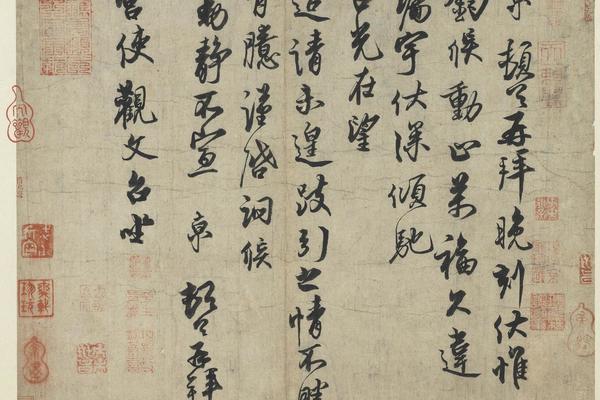 京 頓首再拜晚刻伏惟
鈞候動止萬福久違
牆宇伏深傾馳
台光在望
造請未遑跂引之情不勝
胸臆謹啓詗候
動靜不宣 京 頓首再拜
宮使觀文台坐